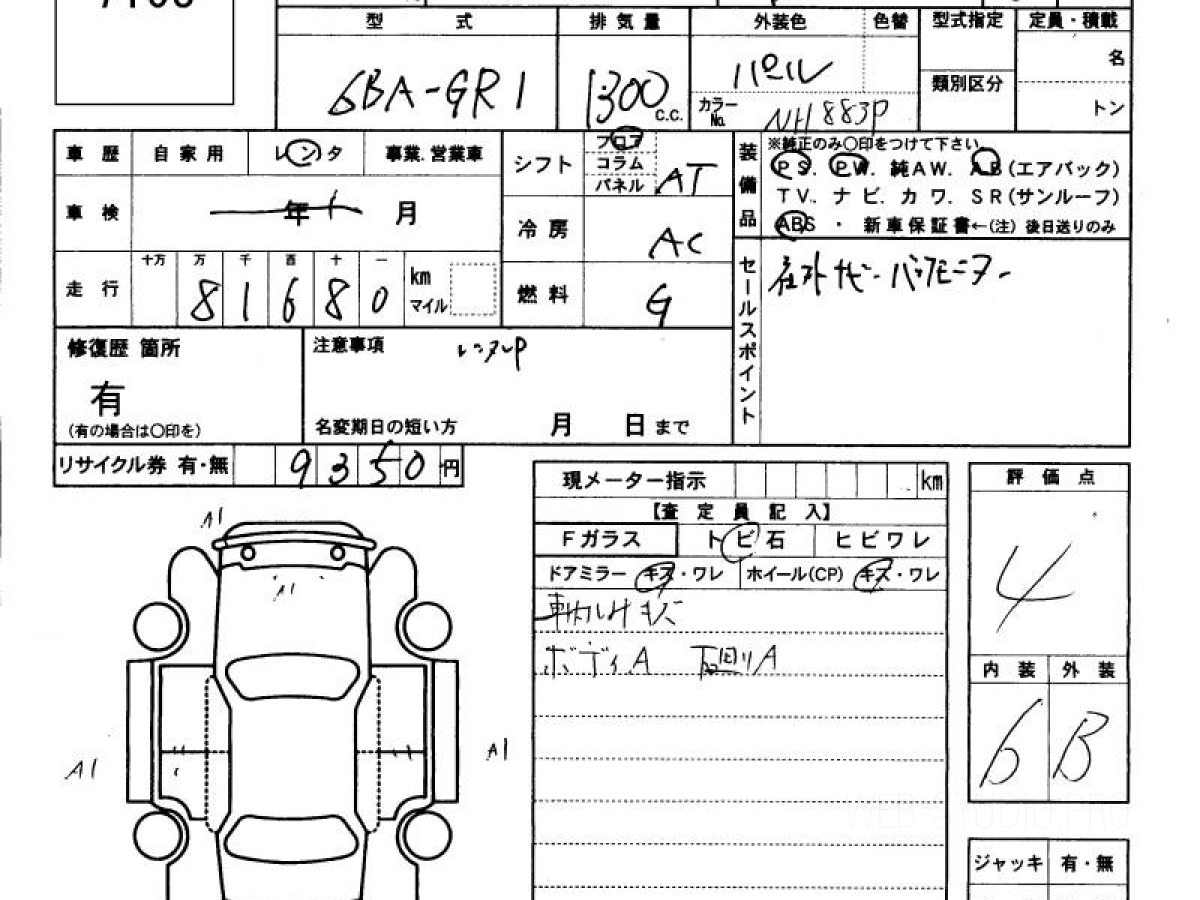 型 式 排 気 量 外装色 色替 型式指定 定員・積載
6BA-GR1 1300 c.c. パール 名
カラーNo. NH883P 類別区分 トン
車 歴 自 家 用 レンタ 事業.営業車
車 検 年 月
走 行 十万 万 千 百 十 一
8 1 6 8 0 km マイル
シフト フロア コラム パネル AT
冷 房 AC
燃 料 G
装備品 ※純正のみ〇印をつけて下さい
PS. PW. 純AW. AB(エアバック)
TV. ナビ. カワ. SR(サンルーフ)
ABS ・ 新車保証書←(注) 後日送りのみ
セールスポイント
社外ナビ バックモニター
修復歴 箇所
有
(有の場合は〇印を)
注意事項 レンタUP
名変期日の短い方 月 日 まで
リサイクル券 有・無 9 3 5 0 円
現メーター指示 km
【査 定 員 記 入】
Fガラス トビ石 ヒビワレ
ドアミラー キズ・ワレ ホイール(CP) キズ・ワレ
車内しみキズ
ボディA 下回りA
評 価 点
4
内 装 外 装
6 B
ジャッキ 有・無
A1
A1
A1
A1
WEB-STUDIO.PRO